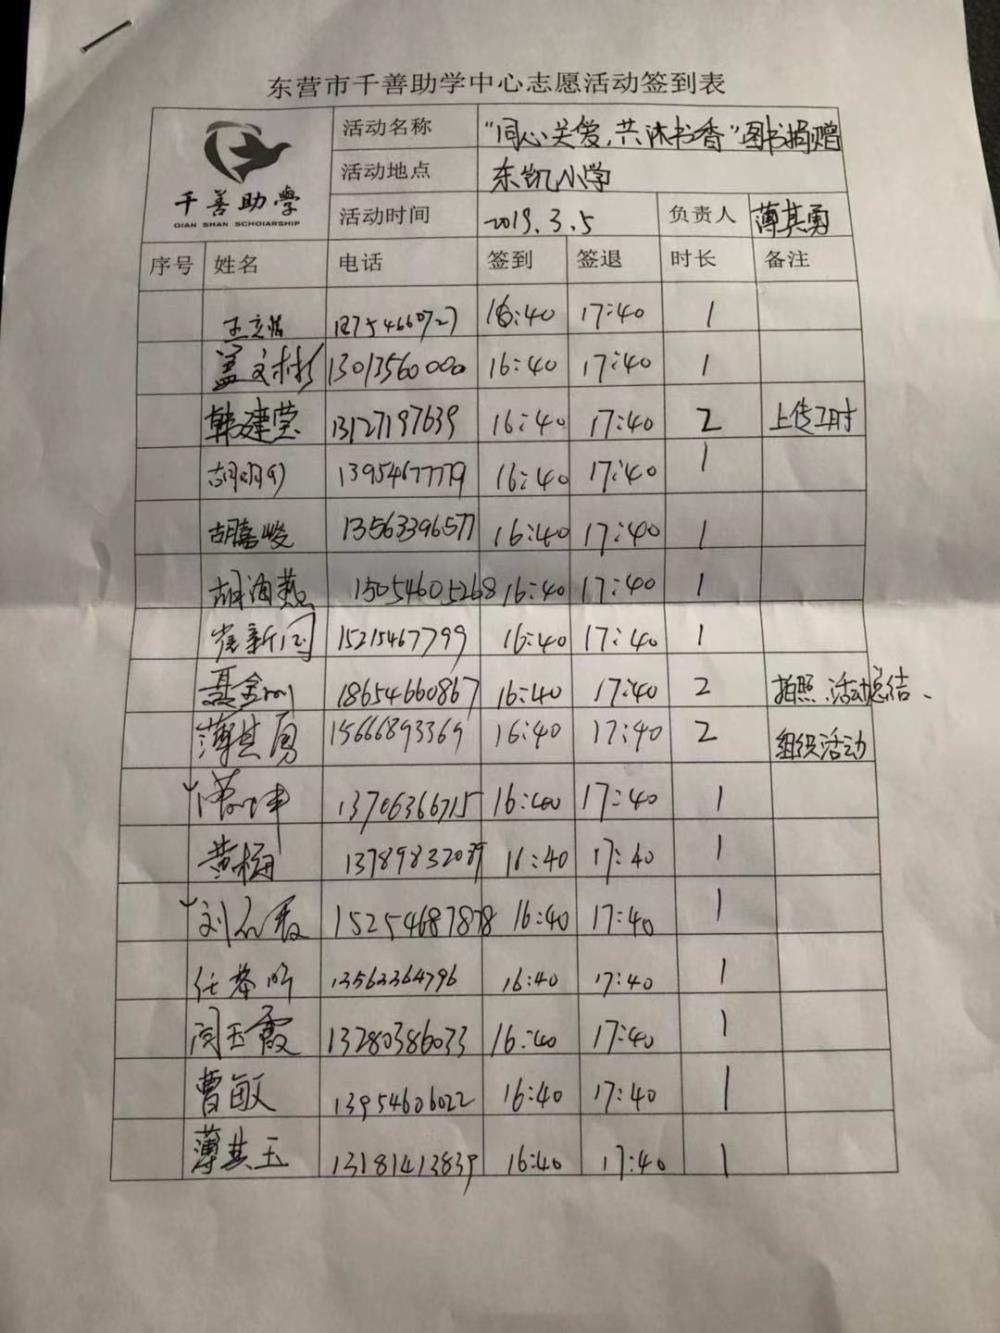 东营市千善助学中心志愿活动签到表
千善助學
QIAN SHAN SCHOLARSHIP
活动名称 "同心关爱,共沐书香"图书捐赠
活动地点 东凯小学
活动时间 2019.3.5 负责人 薄其勇
序号 姓名 电话 签到 签退 时长 备注
16:40 17:40 1
盖文彬 13013560000 16:40 17:40 1
韩建莹 13127197639 16:40 17:40 2 上传工时
13954677779 16:40 17:40 1
胡嘉峻 13563396577 16:40 17:40 1
胡海燕 15054605268 16:40 17:40 1
崔新阁 15215467799 16:40 17:40 1
18654660867 16:40 17:40 2 拍照、活动总结、
薄其勇 15666893369 16:40 17:40 2 组织活动
13706366715 16:40 17:40 1
黄梅 13789832089 16:40 17:40 1
15254687878 16:40 17:40 1
13563364796 16:40 17:40 1
闫玉霞 13280386033 16:40 17:40 1
曹敏 13954606022 16:40 17:40 1
薄其玉 13181413839 16:40 17:40 1